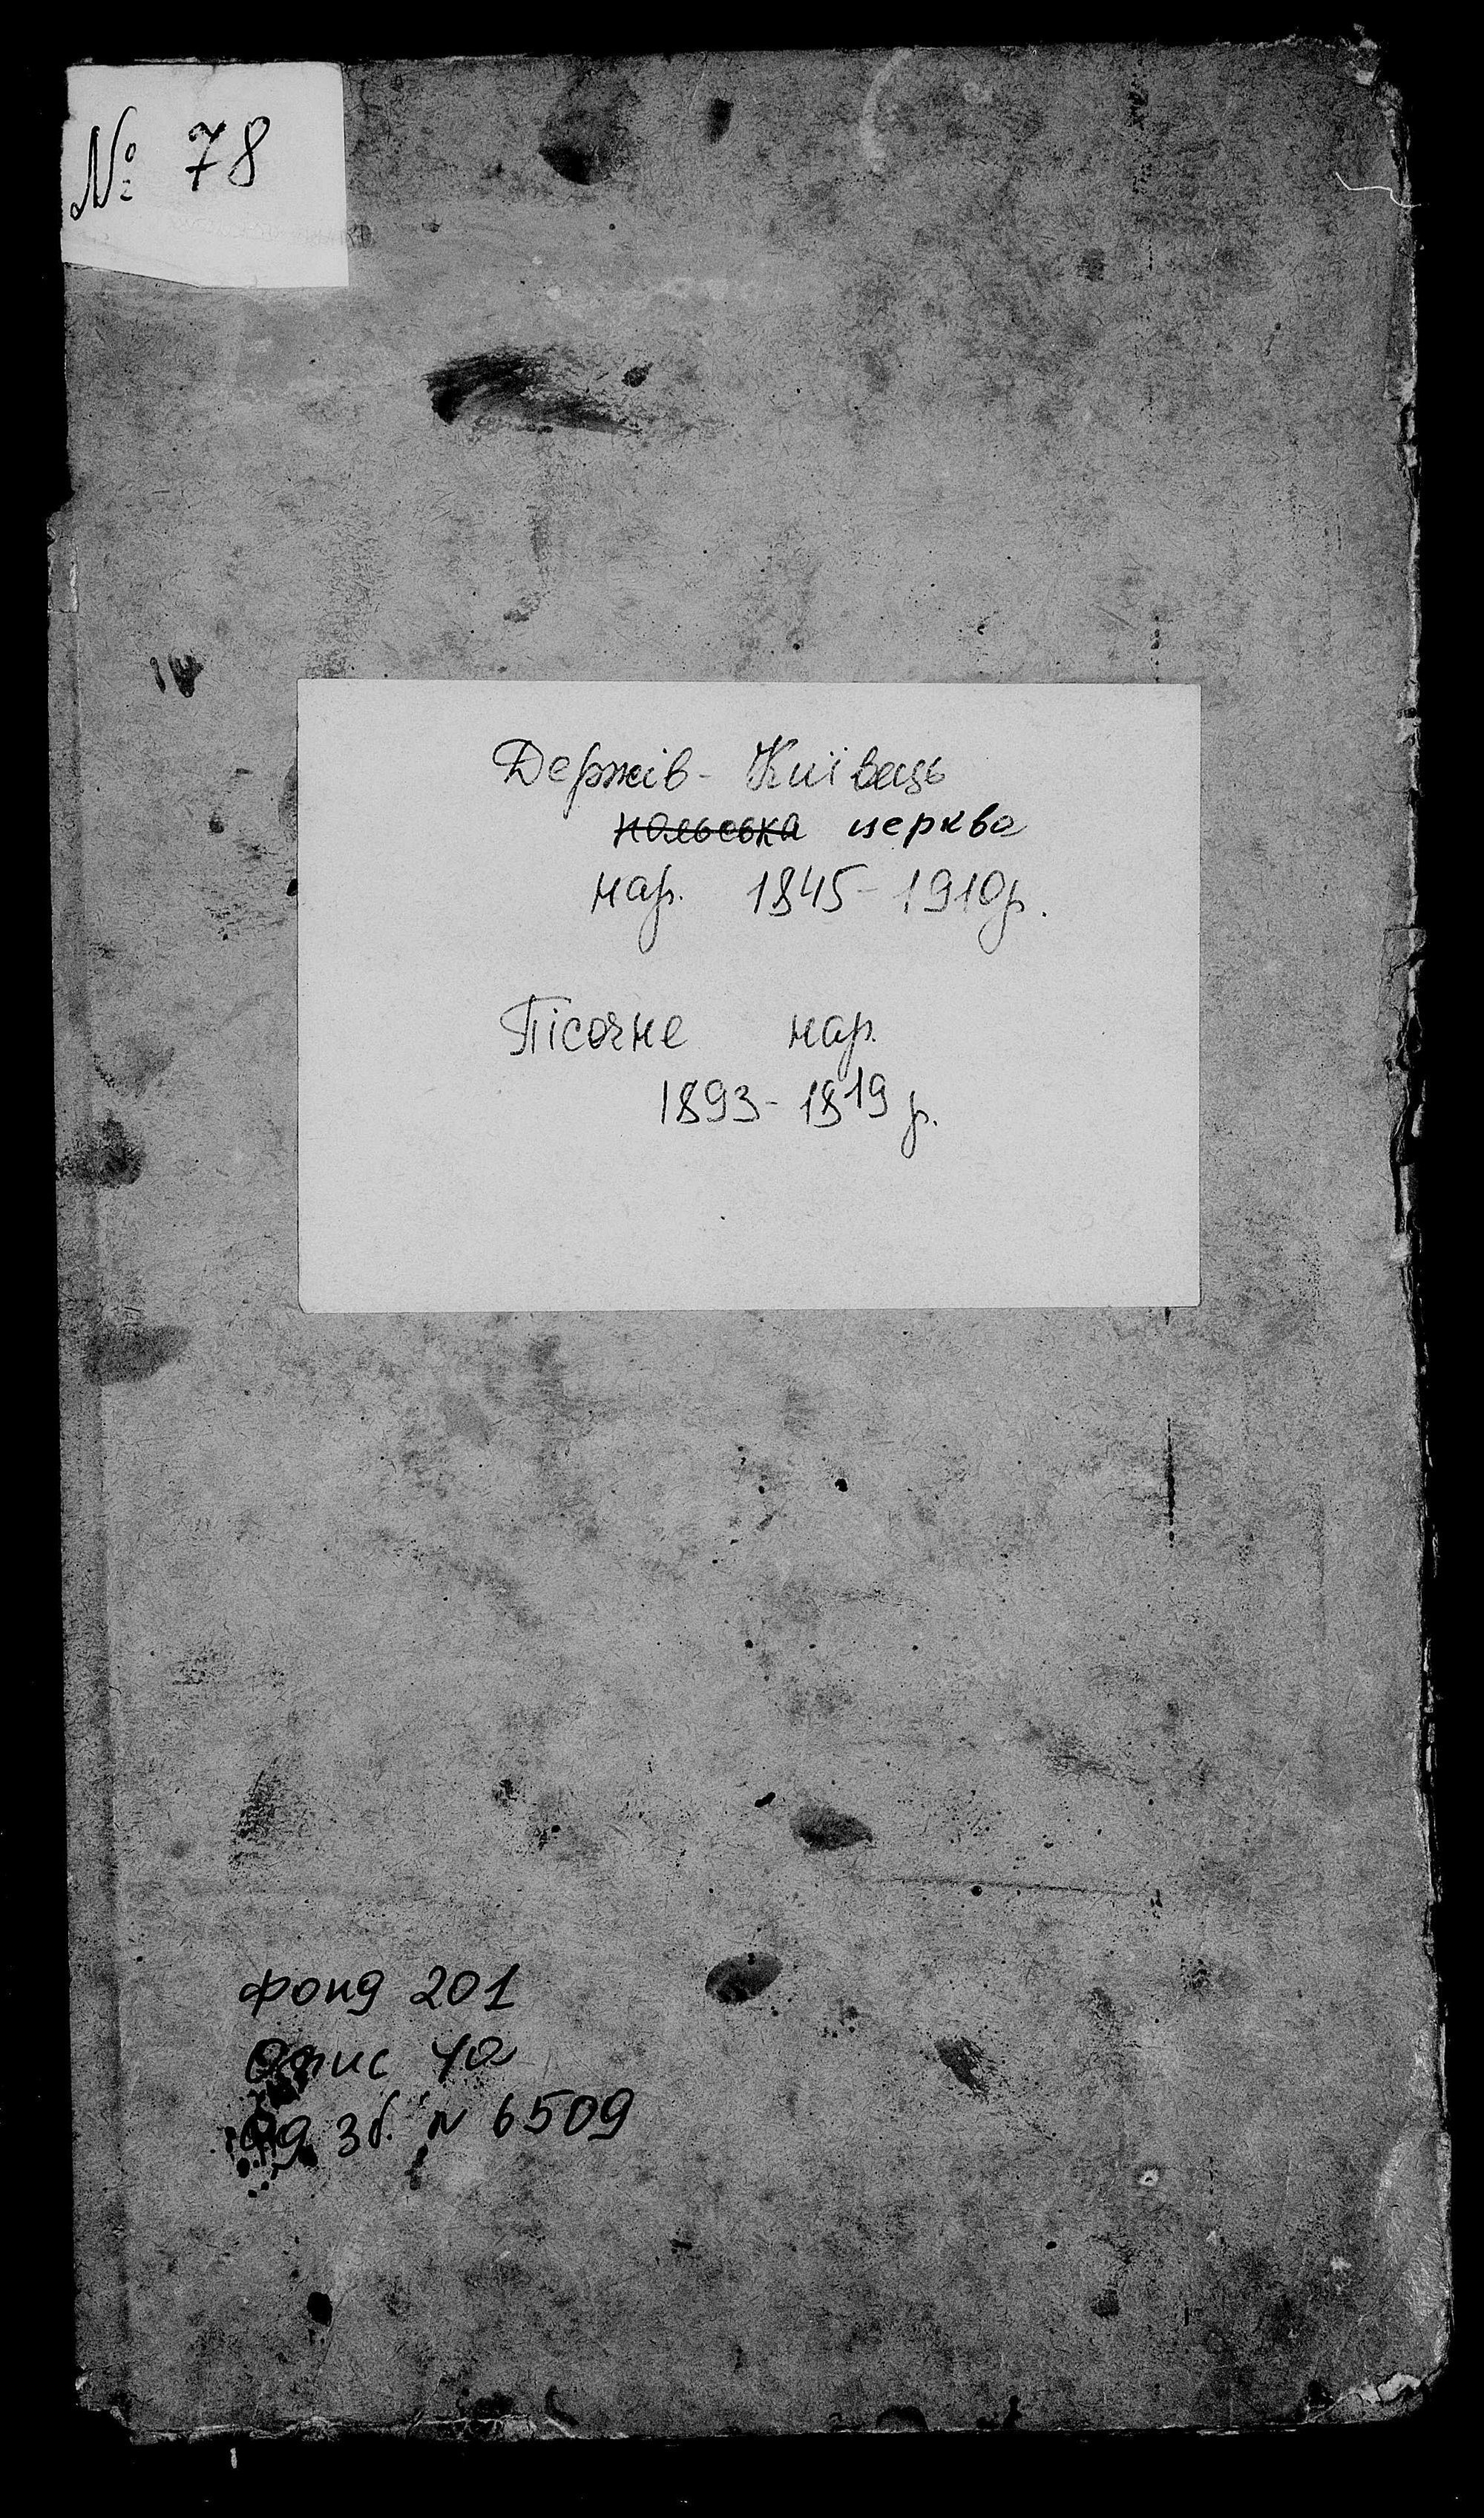 № 78
Держів - Київець
польська церква
нар. 1845 - 1910 р.
Пісочне нар.
1893 - 1819 р.
фонд 201
Опис 4а
од зб. N 6509